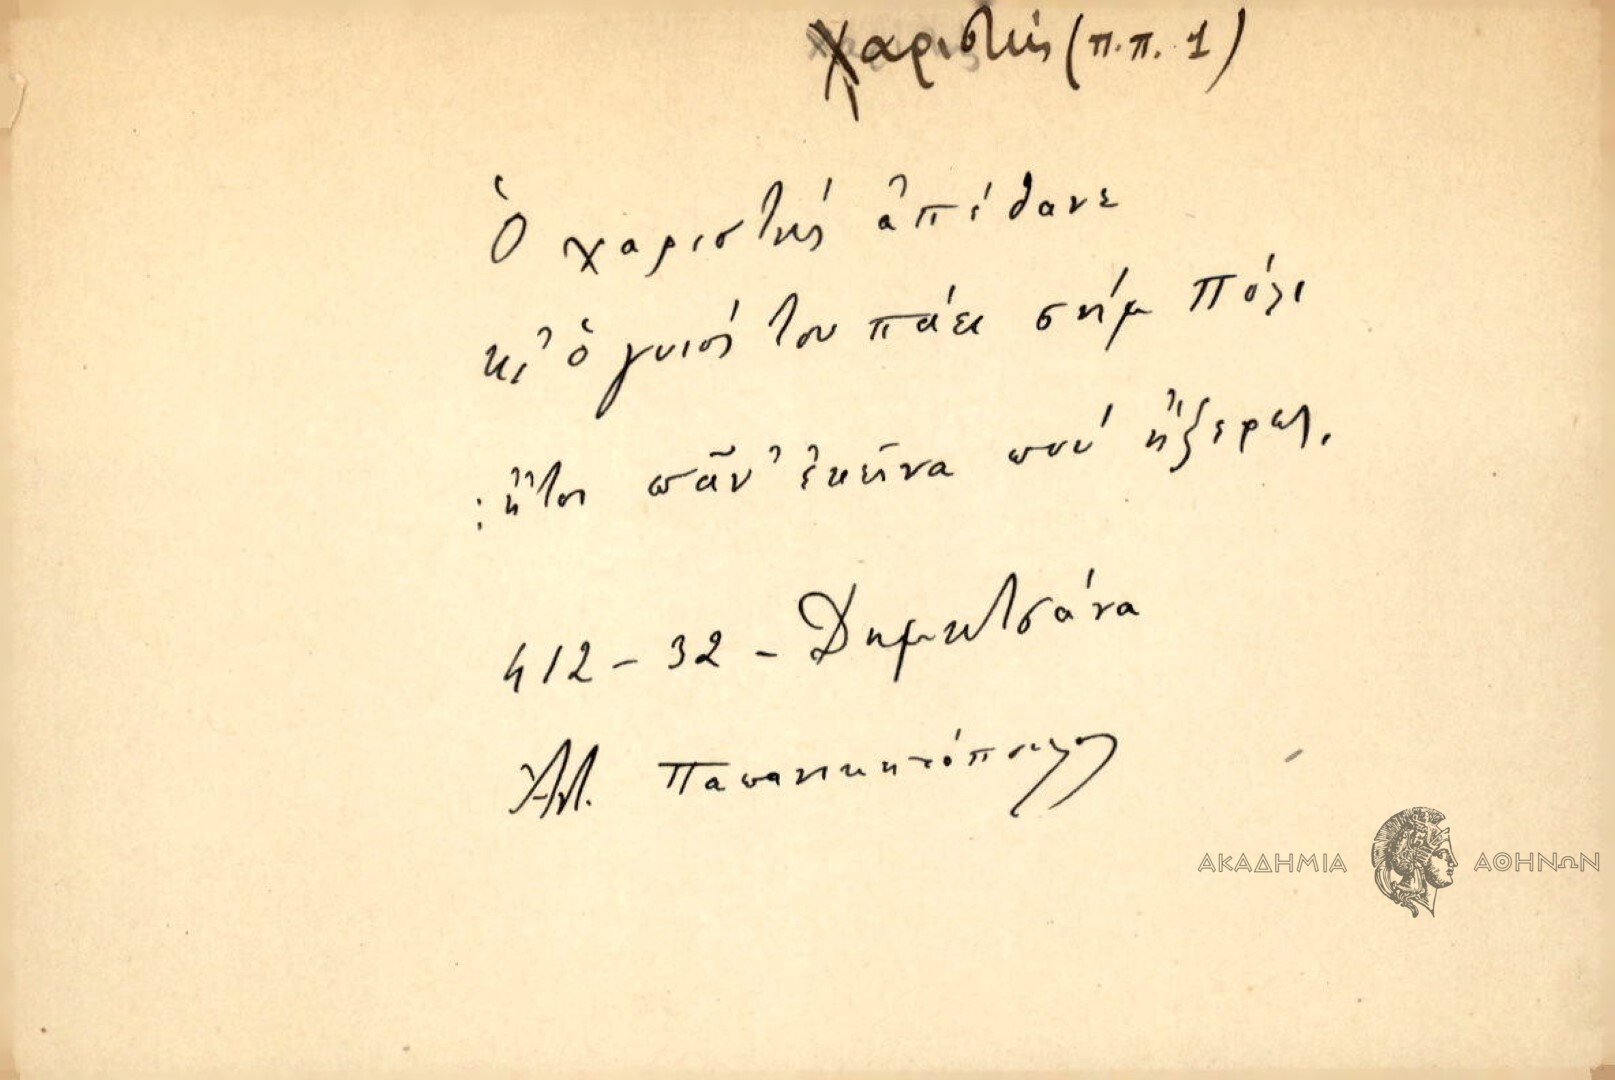 Χαριστής (π.π. 1)
Ὁ χαριστής ἀπέθανε
κι' ὁ γυιός του πάει στήμ Πόλι
: ἤτοι πᾶν' ἐκεῖνα πού ἤξερες.
412 - 32 - Δημητσάνα
Παπανικητόπουλος
ΑΚΑΔΗΜΙΑ ΑΘΗΝΩΝ